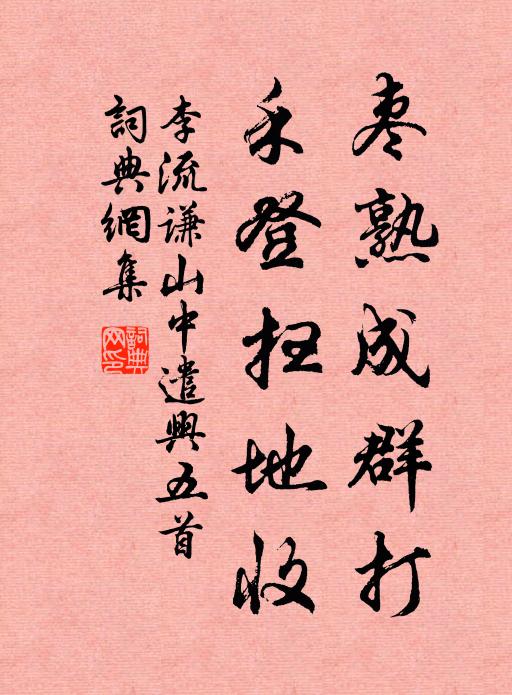 枣熟成群打
禾登扫地收
李流谦山中遣興五首
詞典網集
詞典网印